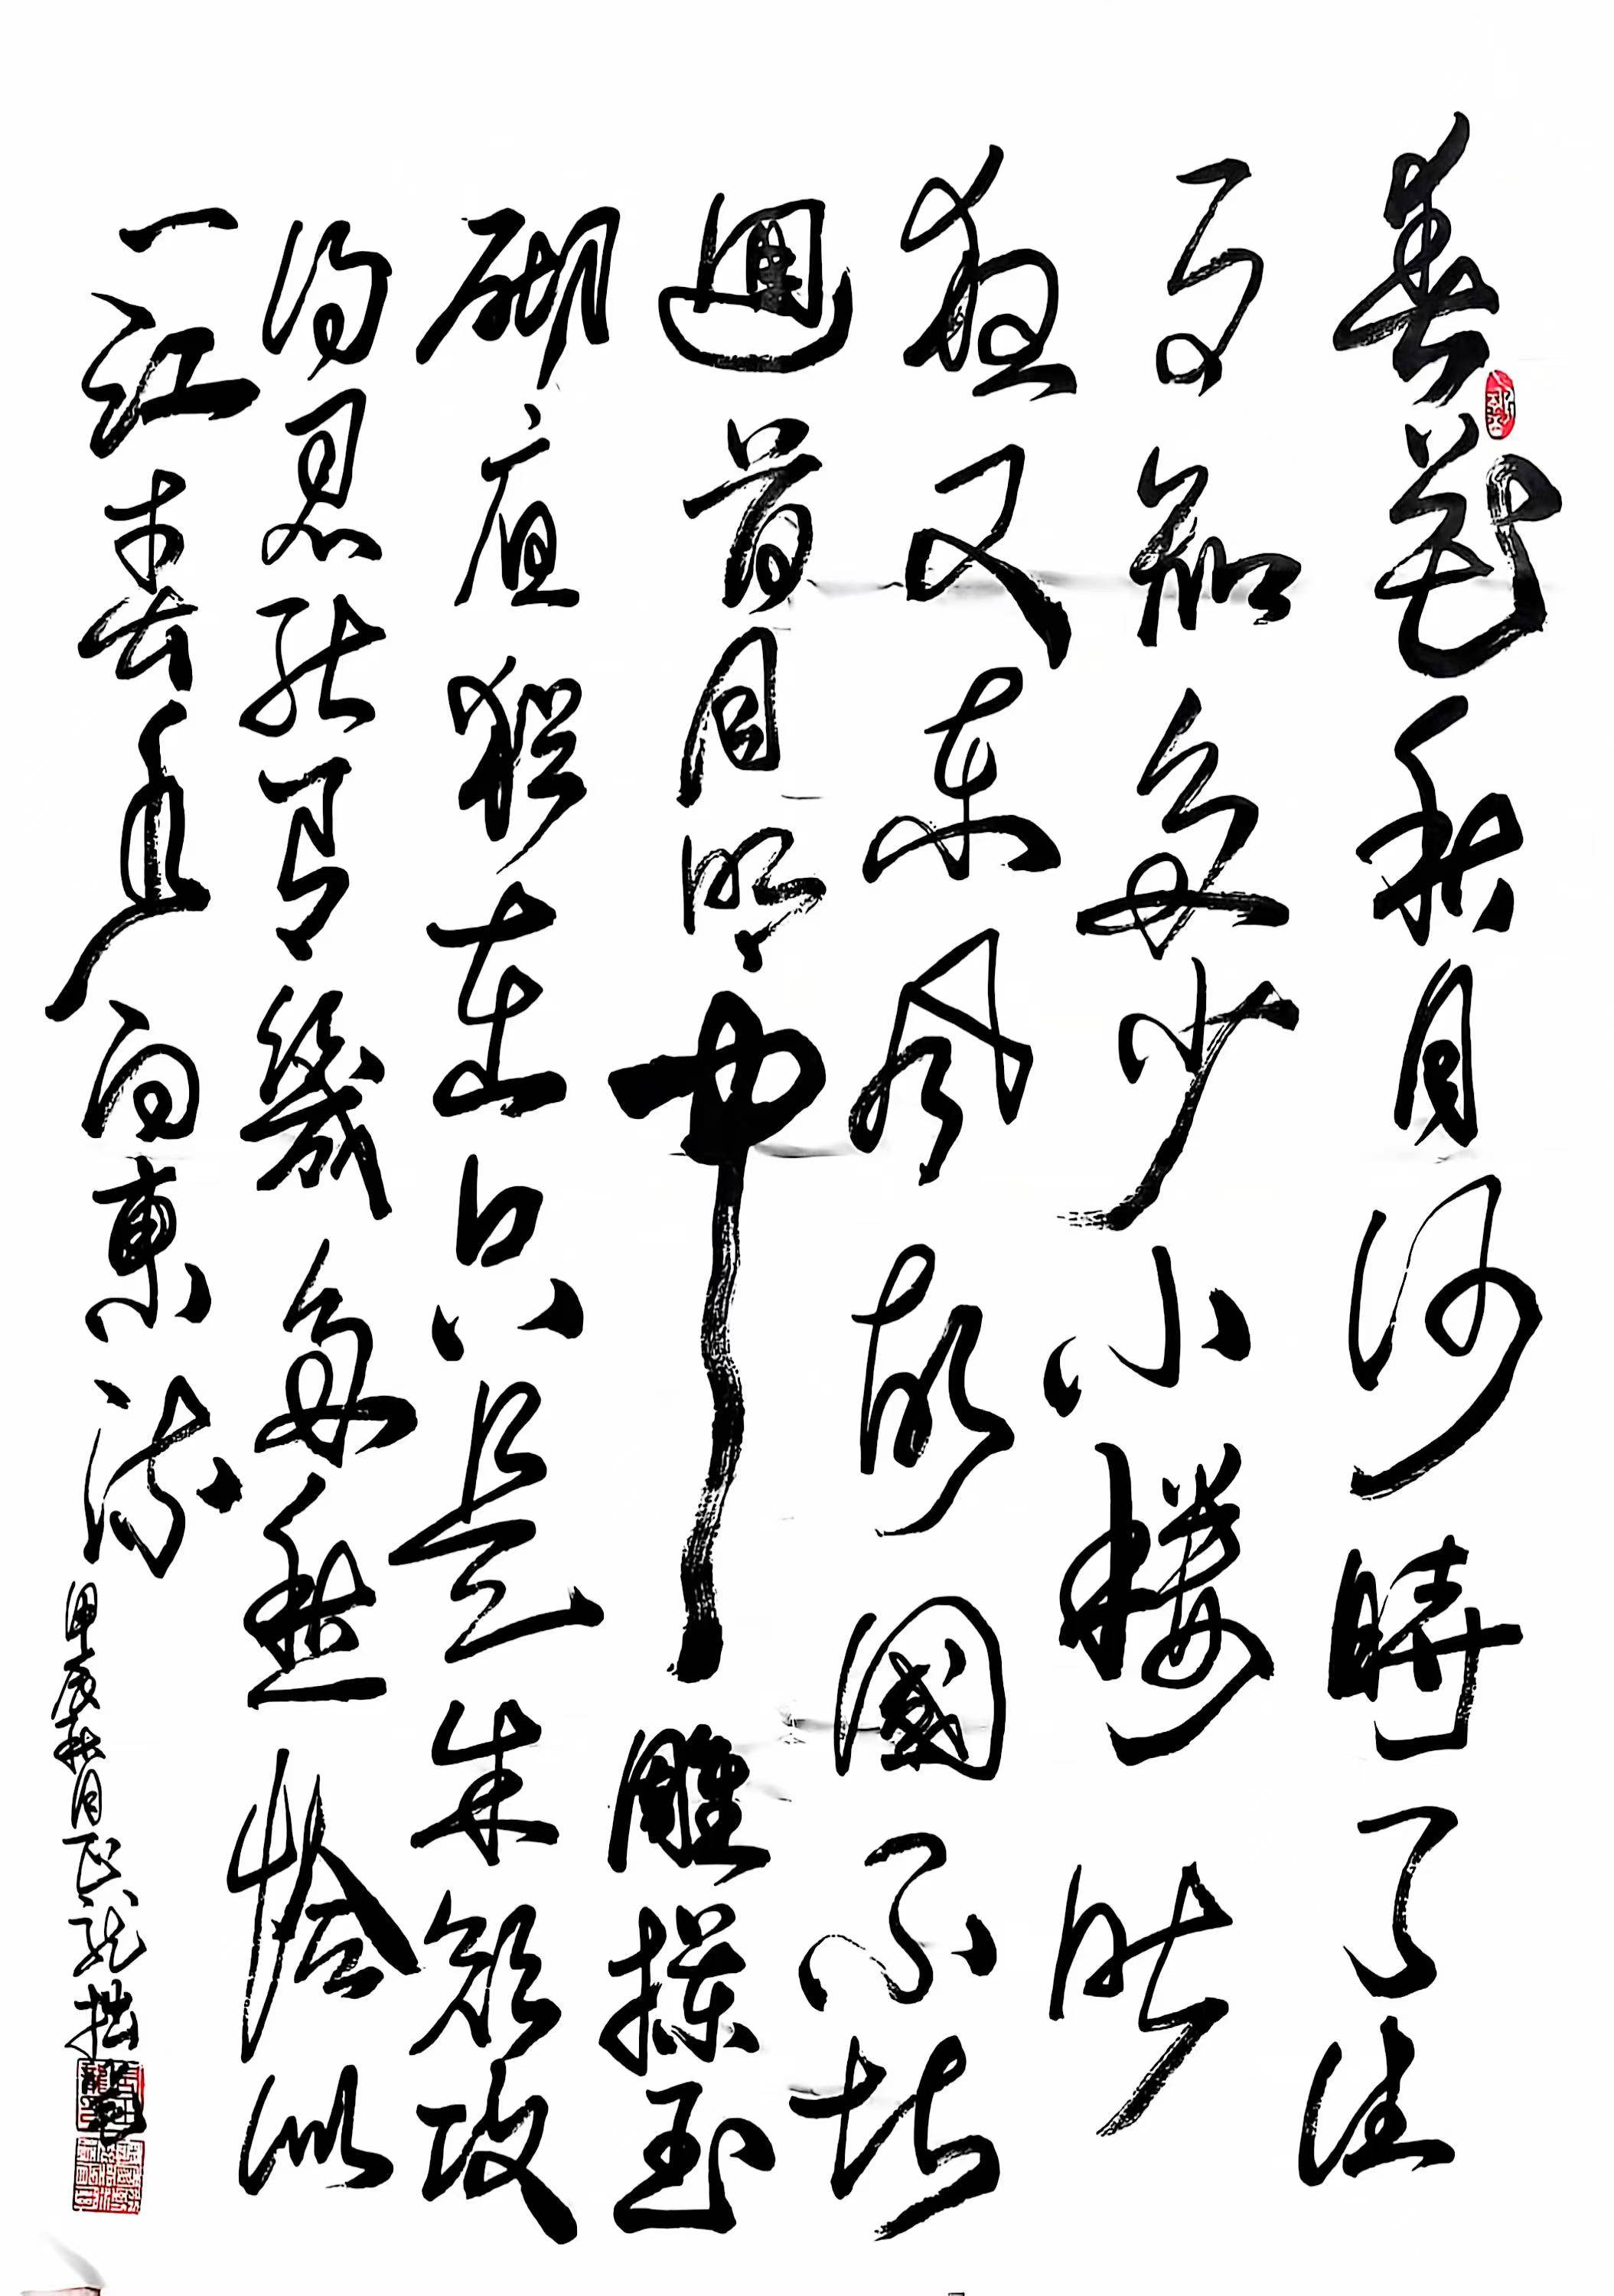 春花秋月何時了往
事知多少小樓昨
夜又东风故國不堪
迴首月明中雕欄玉
砌應猶在只是朱顏改
问君能有幾多愁恰似
一江春水向東流
甲辰秋月正龍拙書